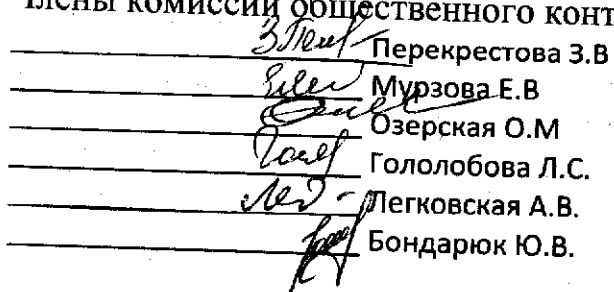 Члены комиссии общественного конт
Перекрестова З.В
Мурзова Е.В
Озерская О.М
Гололобова Л.С.
Легковская А.В.
Бондарюк Ю.В.